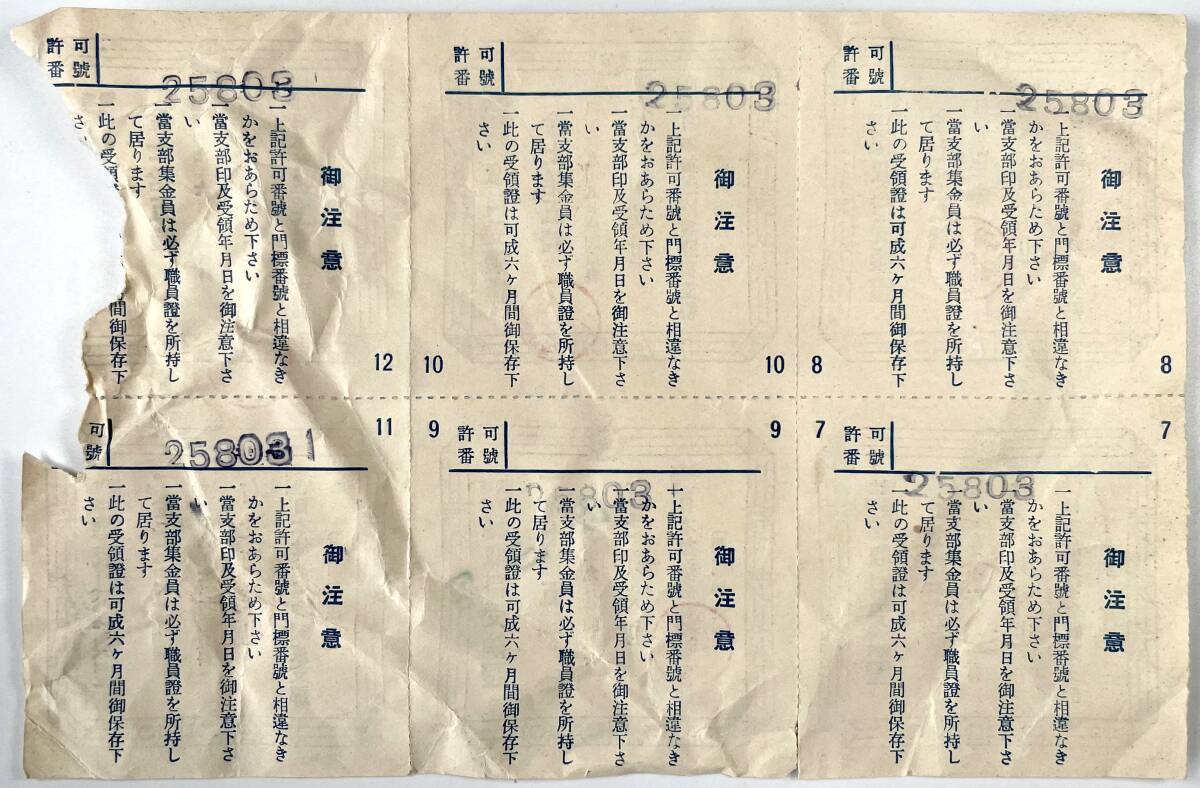 許可
番號
25803
御注意
一上記許可番號と門標番號と相違なき
かをおあらため下さい
一當支部印及受領年月日を御注意下さ
い
一當支部集金員は必ず職員證を所持し
て居ります
一此の受領證は可成六ヶ月間御保存下
さい
8
8
許可
番號
25803
御注意
一上記許可番號と門標番號と相違なき
かをおあらため下さい
一當支部印及受領年月日を御注意下さ
い
一當支部集金員は必ず職員證を所持し
て居ります
一此の受領證は可成六ヶ月間御保存下
さい
10
10
許可
番號
25803
御注意
一上記許可番號と門標番號と相違なき
かをおあらため下さい
一當支部印及受領年月日を御注意下さ
い
一當支部集金員は必ず職員證を所持し
て居ります
一此の受領
間御保存下
さい
12
7
7
許可
番號
25803
御注意
一上記許可番號と門標番號と相違なき
かをおあらため下さい
一當支部印及受領年月日を御注意下さ
い
一當支部集金員は必ず職員證を所持し
て居ります
一此の受領證は可成六ヶ月間御保存下
さい
9
9
許可
番號
25803
御注意
一上記許可番號と門標番號と相違なき
かをおあらため下さい
一當支部印及受領年月日を御注意下さ
い
一當支部集金員は必ず職員證を所持し
て居ります
一此の受領證は可成六ヶ月間御保存下
さい
11
可
號
258031
御注意
一上記許可番號と門標番號と相違なき
かをおあらため下さい
一當支部印及受領年月日を御注意下さ
い
一當支部集金員は必ず職員證を所持し
て居ります
一此の受領證は可成六ヶ月間御保存下
さい